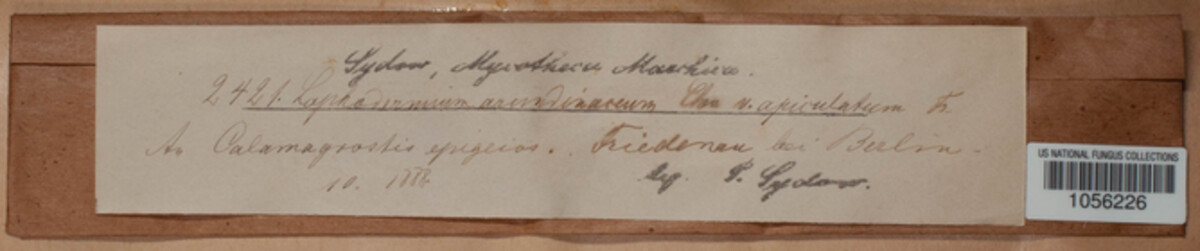 Sydow, Mycotheca Marchica.
2421. Lophodermium arundinaceum Chev v. apiculatum Fr.
An Calamagrostis epigeios. Friedenau bei Berlin.
10. 1888 leg. P. Sydow.
US NATIONAL FUNGUS COLLECTIONS
1056226